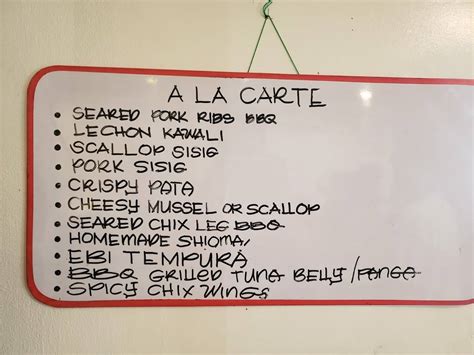 A LA CARTE
• SEARED PORK RIBS BBQ
• LECHON KAWALI
• SCALLOP SISIG
• PORK SISIG
• CRISPY PATA
• CHEESY MUSSEL OR SCALLOP
• SEARED CHIX LEG BBQ
• HOMEMADE SHIOMAI
• EBI TEMPURA
• BBQ GRILLED TUNA BELLY / PANGA
• SPICY CHIX WINGS